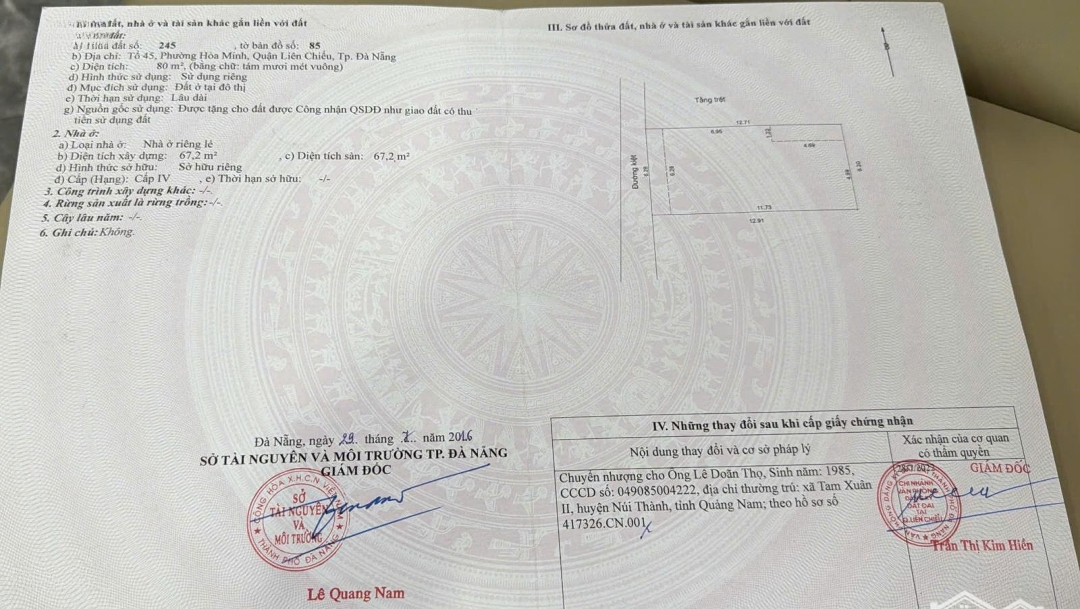 nhà ở và tài sản khác gắn liền với đất
a) Thửa đất số: 245 , tờ bản đồ số: 85
b) Địa chỉ: Tổ 45, Phường Hòa Minh, Quận Liên Chiểu, Tp. Đà Nẵng
c) Diện tích: 80 m², (bằng chữ: tám mươi mét vuông)
d) Hình thức sử dụng: Sử dụng riêng
đ) Mục đích sử dụng: Đất ở tại đô thị
e) Thời hạn sử dụng: Lâu dài
g) Nguồn gốc sử dụng: Được tặng cho đất được Công nhận QSDĐ như giao đất có thu
tiền sử dụng đất
2. Nhà ở:
a) Loại nhà ở: Nhà ở riêng lẻ
b) Diện tích xây dựng: 67,2 m² , c) Diện tích sàn: 67,2 m²
d) Hình thức sở hữu: Sở hữu riêng
đ) Cấp (Hạng): Cấp IV , e) Thời hạn sở hữu: -/-
3. Công trình xây dựng khác: -/-
4. Rừng sản xuất là rừng trồng:-/-
5. Cây lâu năm: -/-
6. Ghi chú: Không.
Đà Nẵng, ngày 29 tháng 7 năm 2016
SỞ TÀI NGUYÊN VÀ MÔI TRƯỜNG TP. ĐÀ NẴNG
GIÁM ĐỐC
CỘNG HÒA X.H.C.N VIỆT NAM
SỞ
TÀI NGUYÊN
VÀ
MÔI TRƯỜNG
THÀNH PHỐ ĐÀ NẴNG
Lê Quang Nam
III. Sơ đồ thửa đất, nhà ở và tài sản khác gắn liền với đất
Tầng trệt
12.71
6.96
1.22
4.69
Đường kiệt
6.29
6.28
4.98
6.20
11.73
12.91
IV. Những thay đổi sau khi cấp giấy chứng nhận
Nội dung thay đổi và cơ sở pháp lý
Xác nhận của cơ quan
có thẩm quyền
Chuyển nhượng cho Ông Lê Doãn Thọ, Sinh năm: 1985,
CCCD số: 049085004222, địa chỉ thường trú: xã Tam Xuân
II, huyện Núi Thành, tỉnh Quảng Nam; theo hồ sơ số
417326.CN.001
GIÁM ĐỐC
CHI NHÁNH
VĂN PHÒNG
ĐĂNG KÝ
ĐẤT ĐAI
TẠI
Q.LIÊN CHIỂU
Trần Thị Kim Hiền